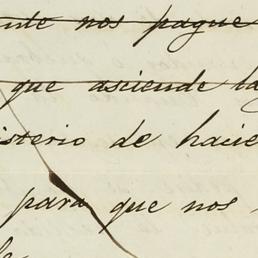 nte nos pague
que asciende la
isterio de hacie
para que nos